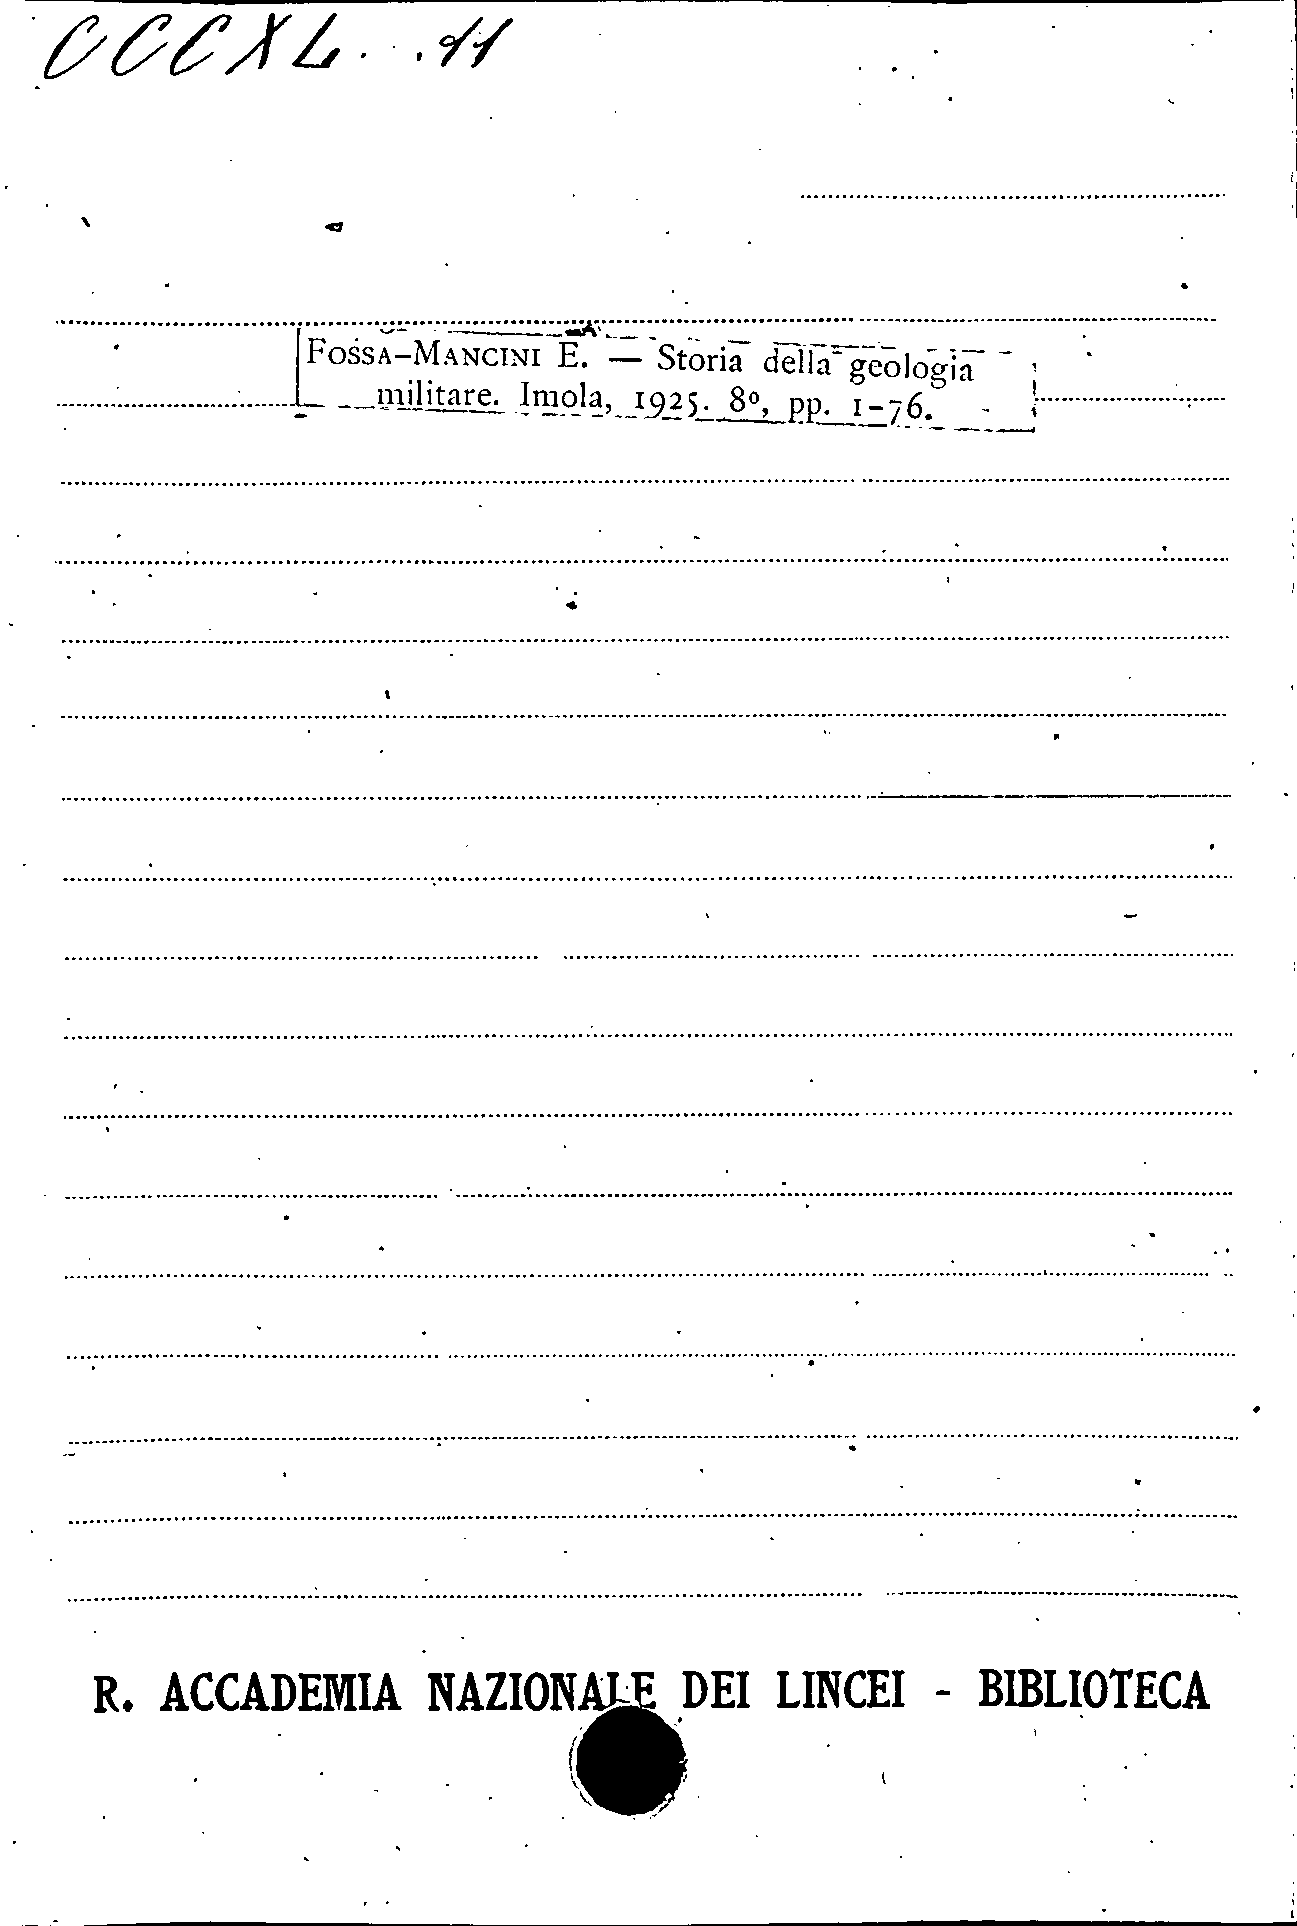 CCCXL. . 11
FOSSA-MANCINI E. — Storia della geologia
militare. Imola, 1925. 8º, pp. 1-76.
R. ACCADEMIA NAZIONALE DEI LINCEI - BIBLIOTECA